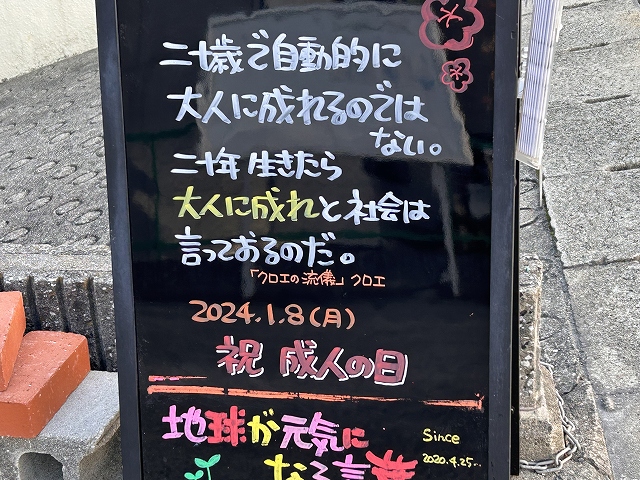 二十歳で自動的に
大人に成れるのでは
ない。
二十年生きたら
大人に成れと社会は
言っておるのだ。
「クロエの流儀」クロエ
2024.1.8(月)
祝 成人の日
地球が元気に
Since
2020.4.25...
なる言葉